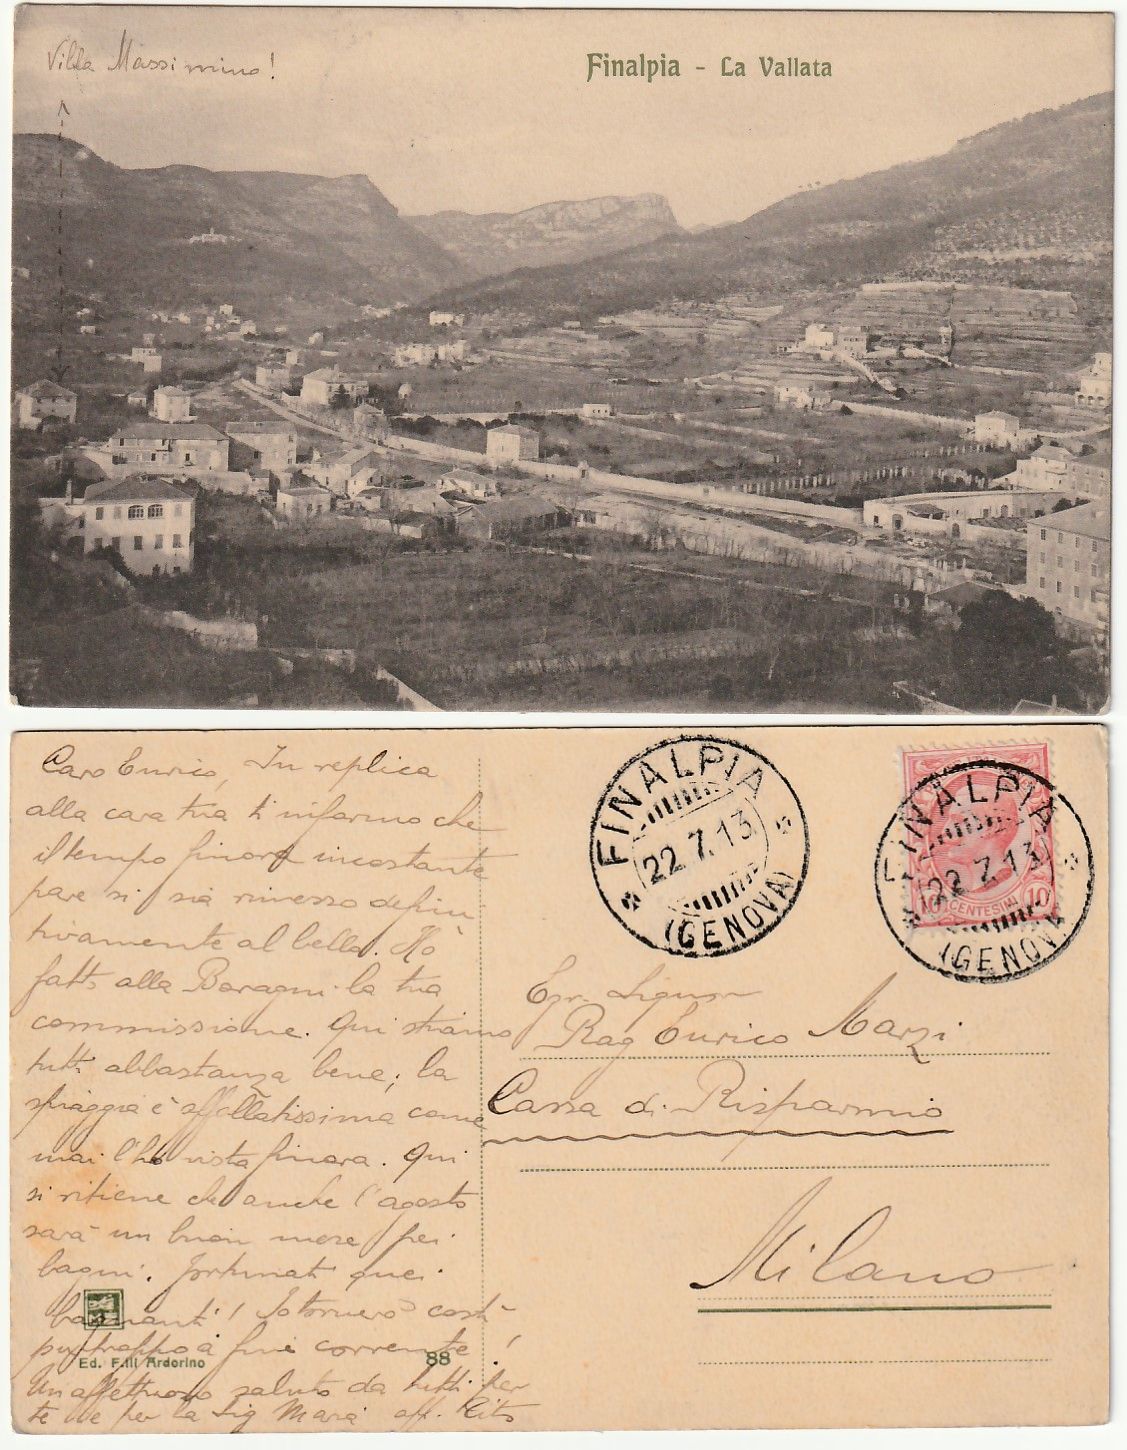 Villa Massimino!
Finalpia - La Vallata
Caro Enrico, In replica
alla cara tua ti informo che
il tempo finora incostante
pare si sia rimesso defini
tivamente al bello. Hò
fatto alla Boragni la tua
commissione. Qui stiamo
tutti abbastanza bene; la
spiaggia è affollatissima come
mai l'hò vista finora. Qui
si ritiene che anche l'agosto
sarà un buon mese pei
bagni. Fortunati quei
bagnanti! Io tornerò costì
purtroppo a fine corrente!
Un affettuoso saluto da tutti per
te e per la Sig Maria aff.
Ed. F.lli Ardorino
88
FINALPIA
22.7.13
(GENOVA)
FINALPIA
22.7.13
(GENOVA)
CENTESIMI 10
Egr. Signor
Rag Enrico Marzi
Cassa di Risparmio
Milano